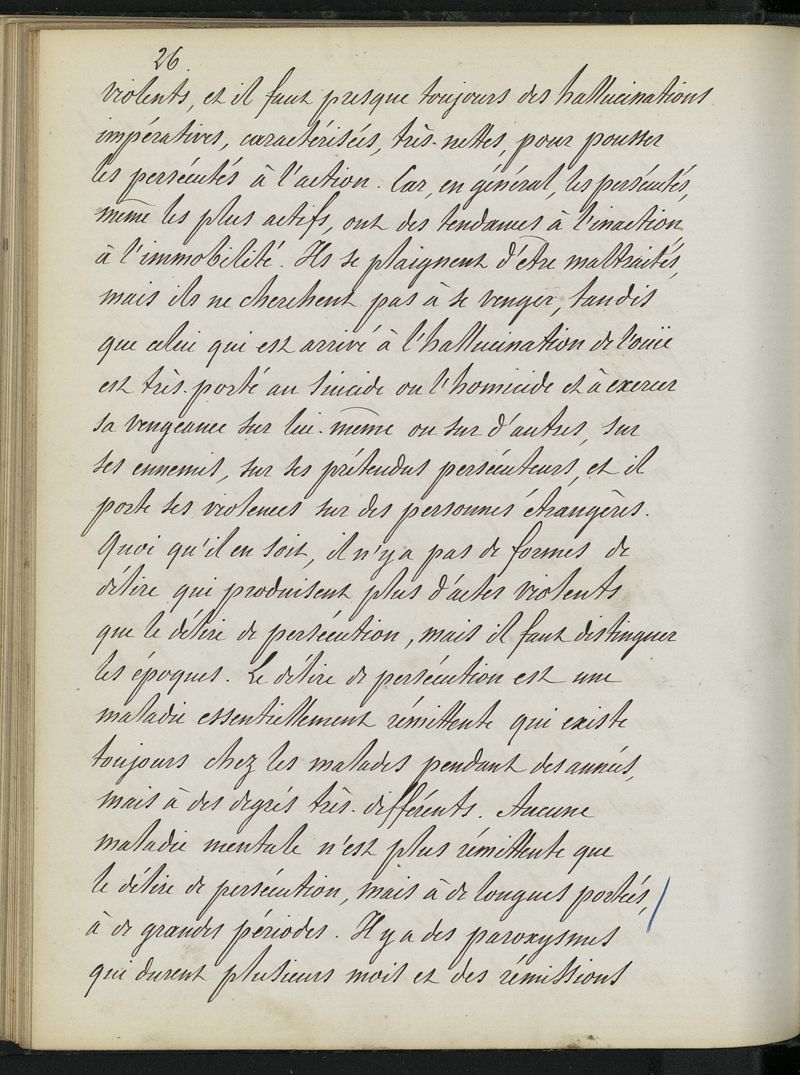 26
violents, et il faut presque toujours des hallucinations
impératives, caractérisées, très-nettes, pour pousser
les persécutés à l'action. Car, en général, les persécutés,
même les plus actifs, ont des tendances à l'inaction
à l'immobilité. Ils se plaignent d'être maltraités,
mais ils ne cherchent pas à se venger, tandis
que celui qui est arrivé à l'hallucination de l'ouïe
est très-porté au suicide ou l'homicide et à exercer
sa vengeance sur lui-même ou sur d'autres, sur
ses ennemis, sur ses prétendus persécuteurs, et il
porte ses violences sur des personnes étrangères.
Quoi qu'il en soit, il n'y a pas de formes de
délire qui produisent plus d'actes violents
que le délire de persécution, mais il faut distinguer
les époques. Le délire de persécution est une
maladie essentiellement rémittente qui existe
toujours chez les malades pendant des années,
mais à des degrés très-différents. Aucune
maladie mentale n'est plus rémittente que
le délire de persécution, mais à de longues portées,
à de grandes périodes. Il y a des paroxysmes
qui durent plusieurs mois et des rémissions